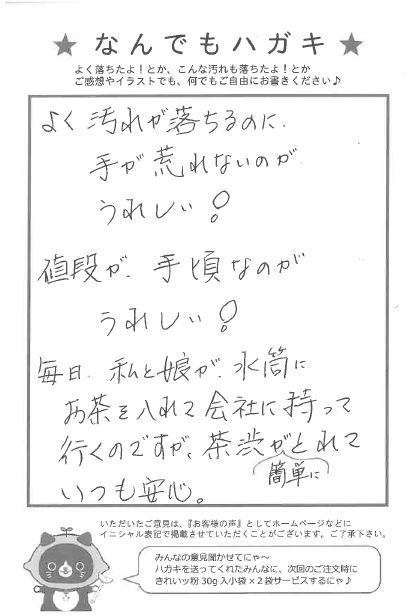 ★ なんでもハガキ ★
よく落ちたよ！とか、こんな汚れも落ちたよ！とか
ご感想やイラストでも、何でもご自由にお書きください♪
よく 汚れが落ちるのに、
手が荒れないのが
うれしい！
値段が、手頃なのが
うれしい！
毎日、私と娘が、水筒に
お茶を入れて会社に持って
行くのですが、茶渋が簡単にとれて
いつも安心。
いただいたご意見は、『お客様の声』としてホームページなどに
イニシャル表記で掲載させていただくことがございます。ご了承下さい。
みんなの意見聞かせてにゃ〜
ハガキを送ってくれたみんなに、次回のご注文時に
きれいッ粉 30g 入小袋×2袋サービスするにゃ♪